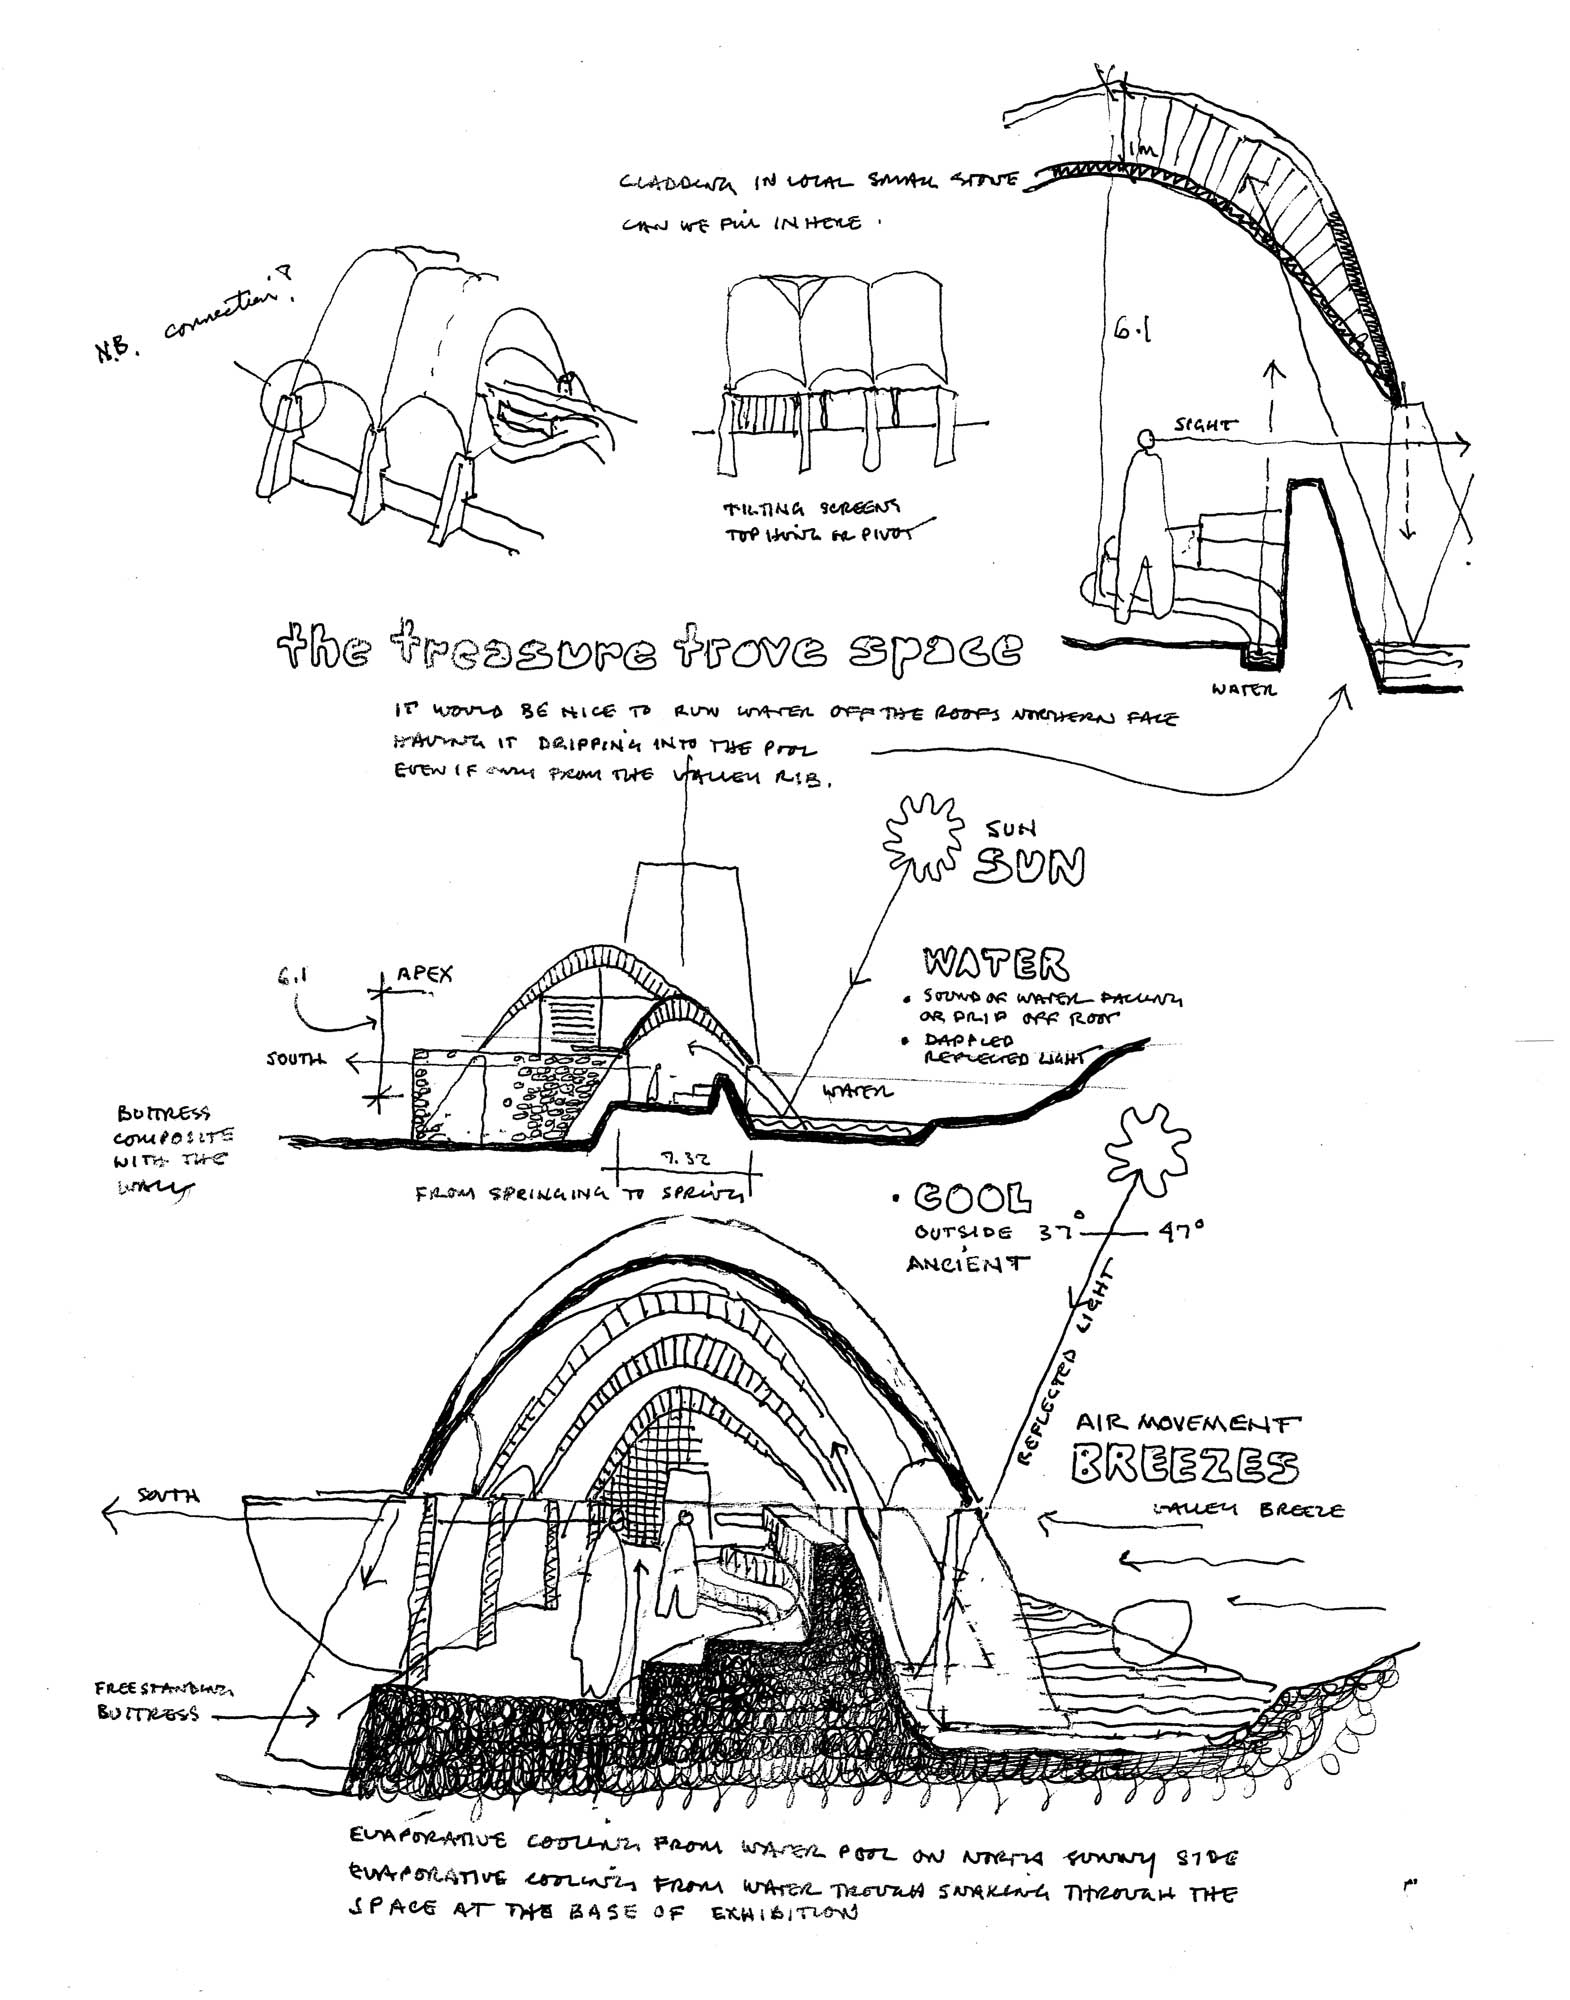 CLADDING IN LOCAL SMALL STONE
CAN WE FILL IN HERE.
1m
N.B. connection?
6.1
SIGHT
TILTING SCREENS
TOP HUNG OR PIVOT
the treasure trove space
WATER
IT WOULD BE NICE TO RUN WATER OFF THE ROOFS NORTHERN FACE
HAVING IT DRIPPING INTO THE POOL
EVEN IF ONLY FROM THE VALLEY RIB.
SUN
SUN
WATER
• SOUND OF WATER FALLING
OR DRIP OFF ROOF
• DAPPLED
REFLECTED LIGHT
6.1
APEX
SOUTH
WATER
BUTTRESS
COMPOSITE
WITH THE
WALL
7.32
FROM SPRINGING TO SPRING
• COOL
OUTSIDE 37° 47°
ANCIENT
REFLECTED LIGHT
AIR MOVEMENT
BREEZES
VALLEY BREEZE
SOUTH
FREESTANDING
BUTTRESS
EVAPORATIVE COOLING FROM WATER POOL ON NORTH SUNNY SIDE
EVAPORATIVE COOLING FROM WATER TROUGH SNAKING THROUGH THE
SPACE AT THE BASE OF EXHIBITION